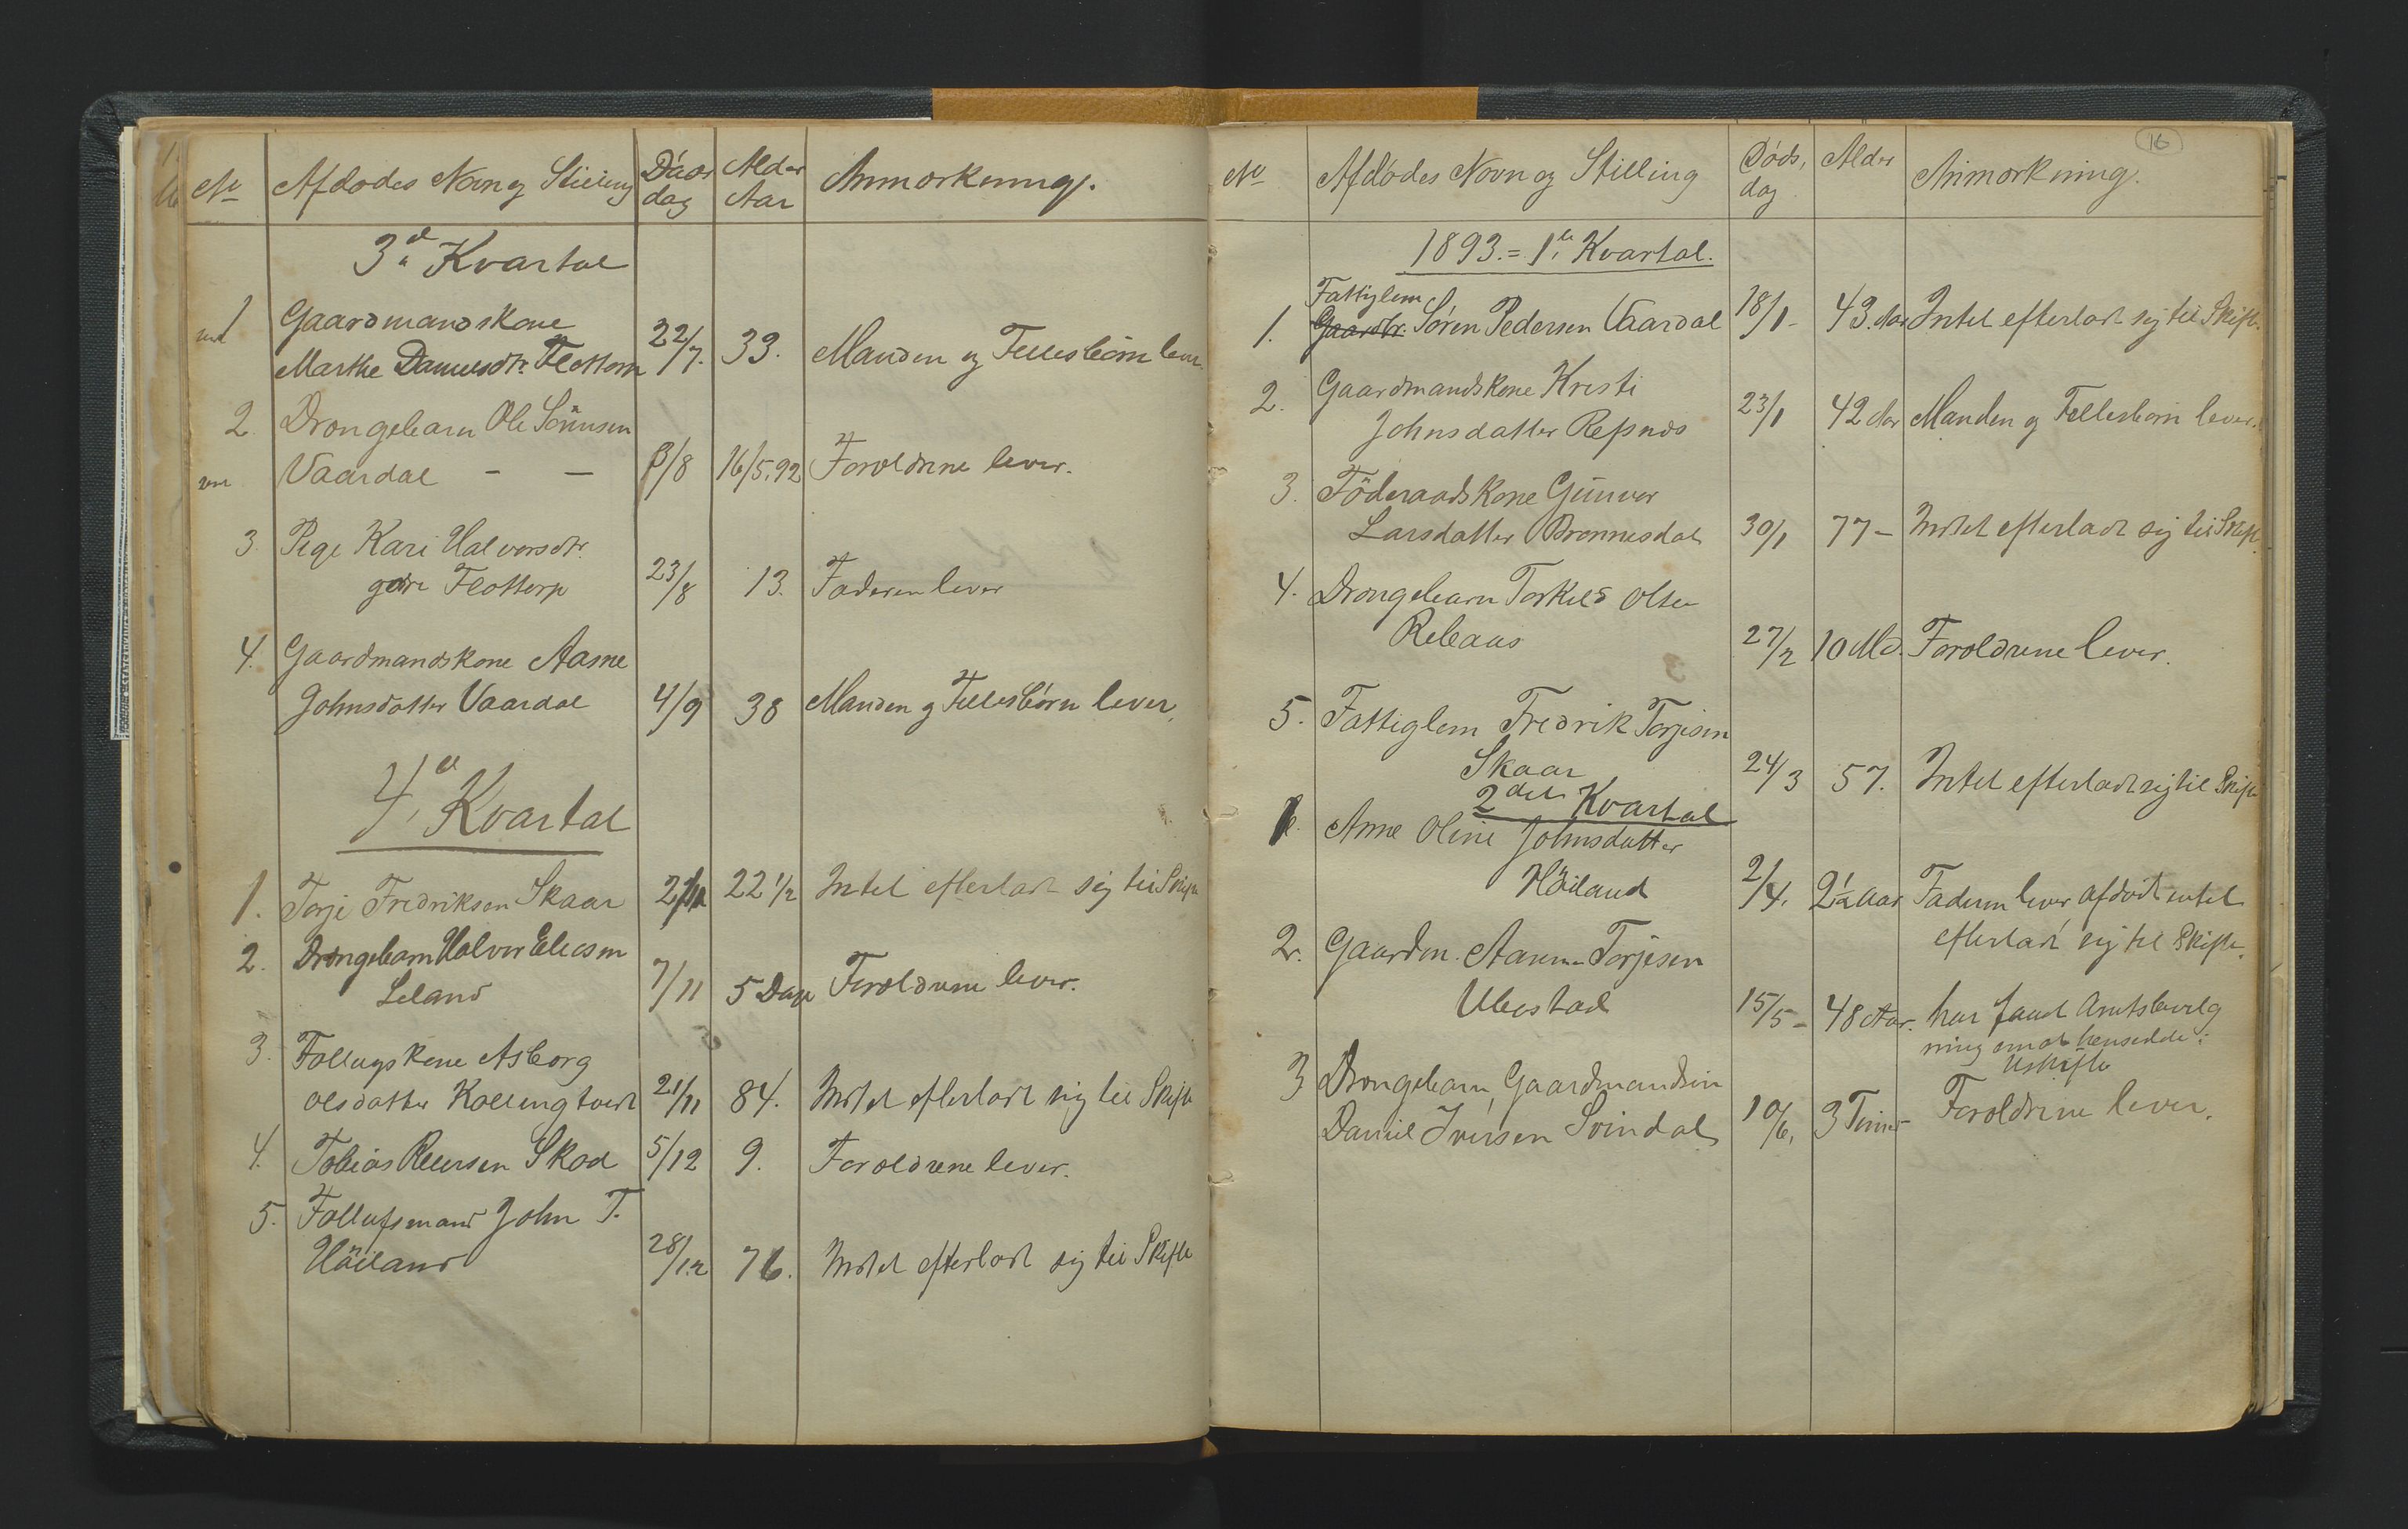 No Afdødes Navn og Stilling Døds dag Alder Aar Anmærkning.
3d Kvartal
1 Gaardmandskone
Marthe Danielsdtr. Flottorp 22/7. 33. Manden og Fellesbörn lever.
2 Drengebarn Ole Sörensen
Vaardal – – 8/8 16/5.92 Foreldrene lever.
3. Pige Kari Halvorsdtr.
Flottorp 23/8 13. Faderen lever
4. Gaardmandskone Aasne
Johnsdatter Vaardal 4/9 38 Manden og Fellesbörn lever.
4d Kvartal
1. Torje Fredriksen Skaar 22 1/2 Intet efterladt sig til Skifte
2. Drengebarn Halvor Eliesen
Leland 7/11 5 Dage Foreldrene lever.
3. Follugskone Asborg
Olsdatter Kollingtveit 21/11 84. Intet efterladt sig til Skifte
4. Tobias Reiersen Skod 5/12 9. Foreldrene lever.
5. Follufsmand John T.
Höiland 28/12 76. Intet efterladt sig til Skifte
16
No Afdödes Navn og Stilling Döds, dag Alder Anmærkning.
1893. = 1ste Kvartal.
Fattiglem
1. Gaardbr. Sören Pedersen Vaardal 18/1 - 43. Aar Intet efterladt sig til Skifte.
2. Gaardmandskone Kristi
Johnsdatter Repnes 23/1 42 Aar Manden og Fellesbörn lever.
3. Föderaadskone Gunvor
Larsdatter Bronnesdal 30/1 77 – Intet efterladt sig til Skifte.
4. Drengebarn Torkild Olsen
Rebaas 27/2 10 Md. Foreldrene lever.
5. Fattiglem Fredrik Torjesen
Skaar 24/3 57. Intet efterladt sig til Skifte
2det Kvartal
1. Anne Oline Johnsdatter
Höiland 2/4. 2½ Aar Faderen lever afdöde intet
efterladt sig til Skifte.
2. Gaardm. Aanen Torjesen
Ubostad 15/5 – 48 Aar. har faaet Amtsbevilg
ning om at hensidde i
Uskifte
3 Drengebarn, Gaardmandsön
Daniel Iversen Svindal 10/6, 3 Timer Foreldrene lever.